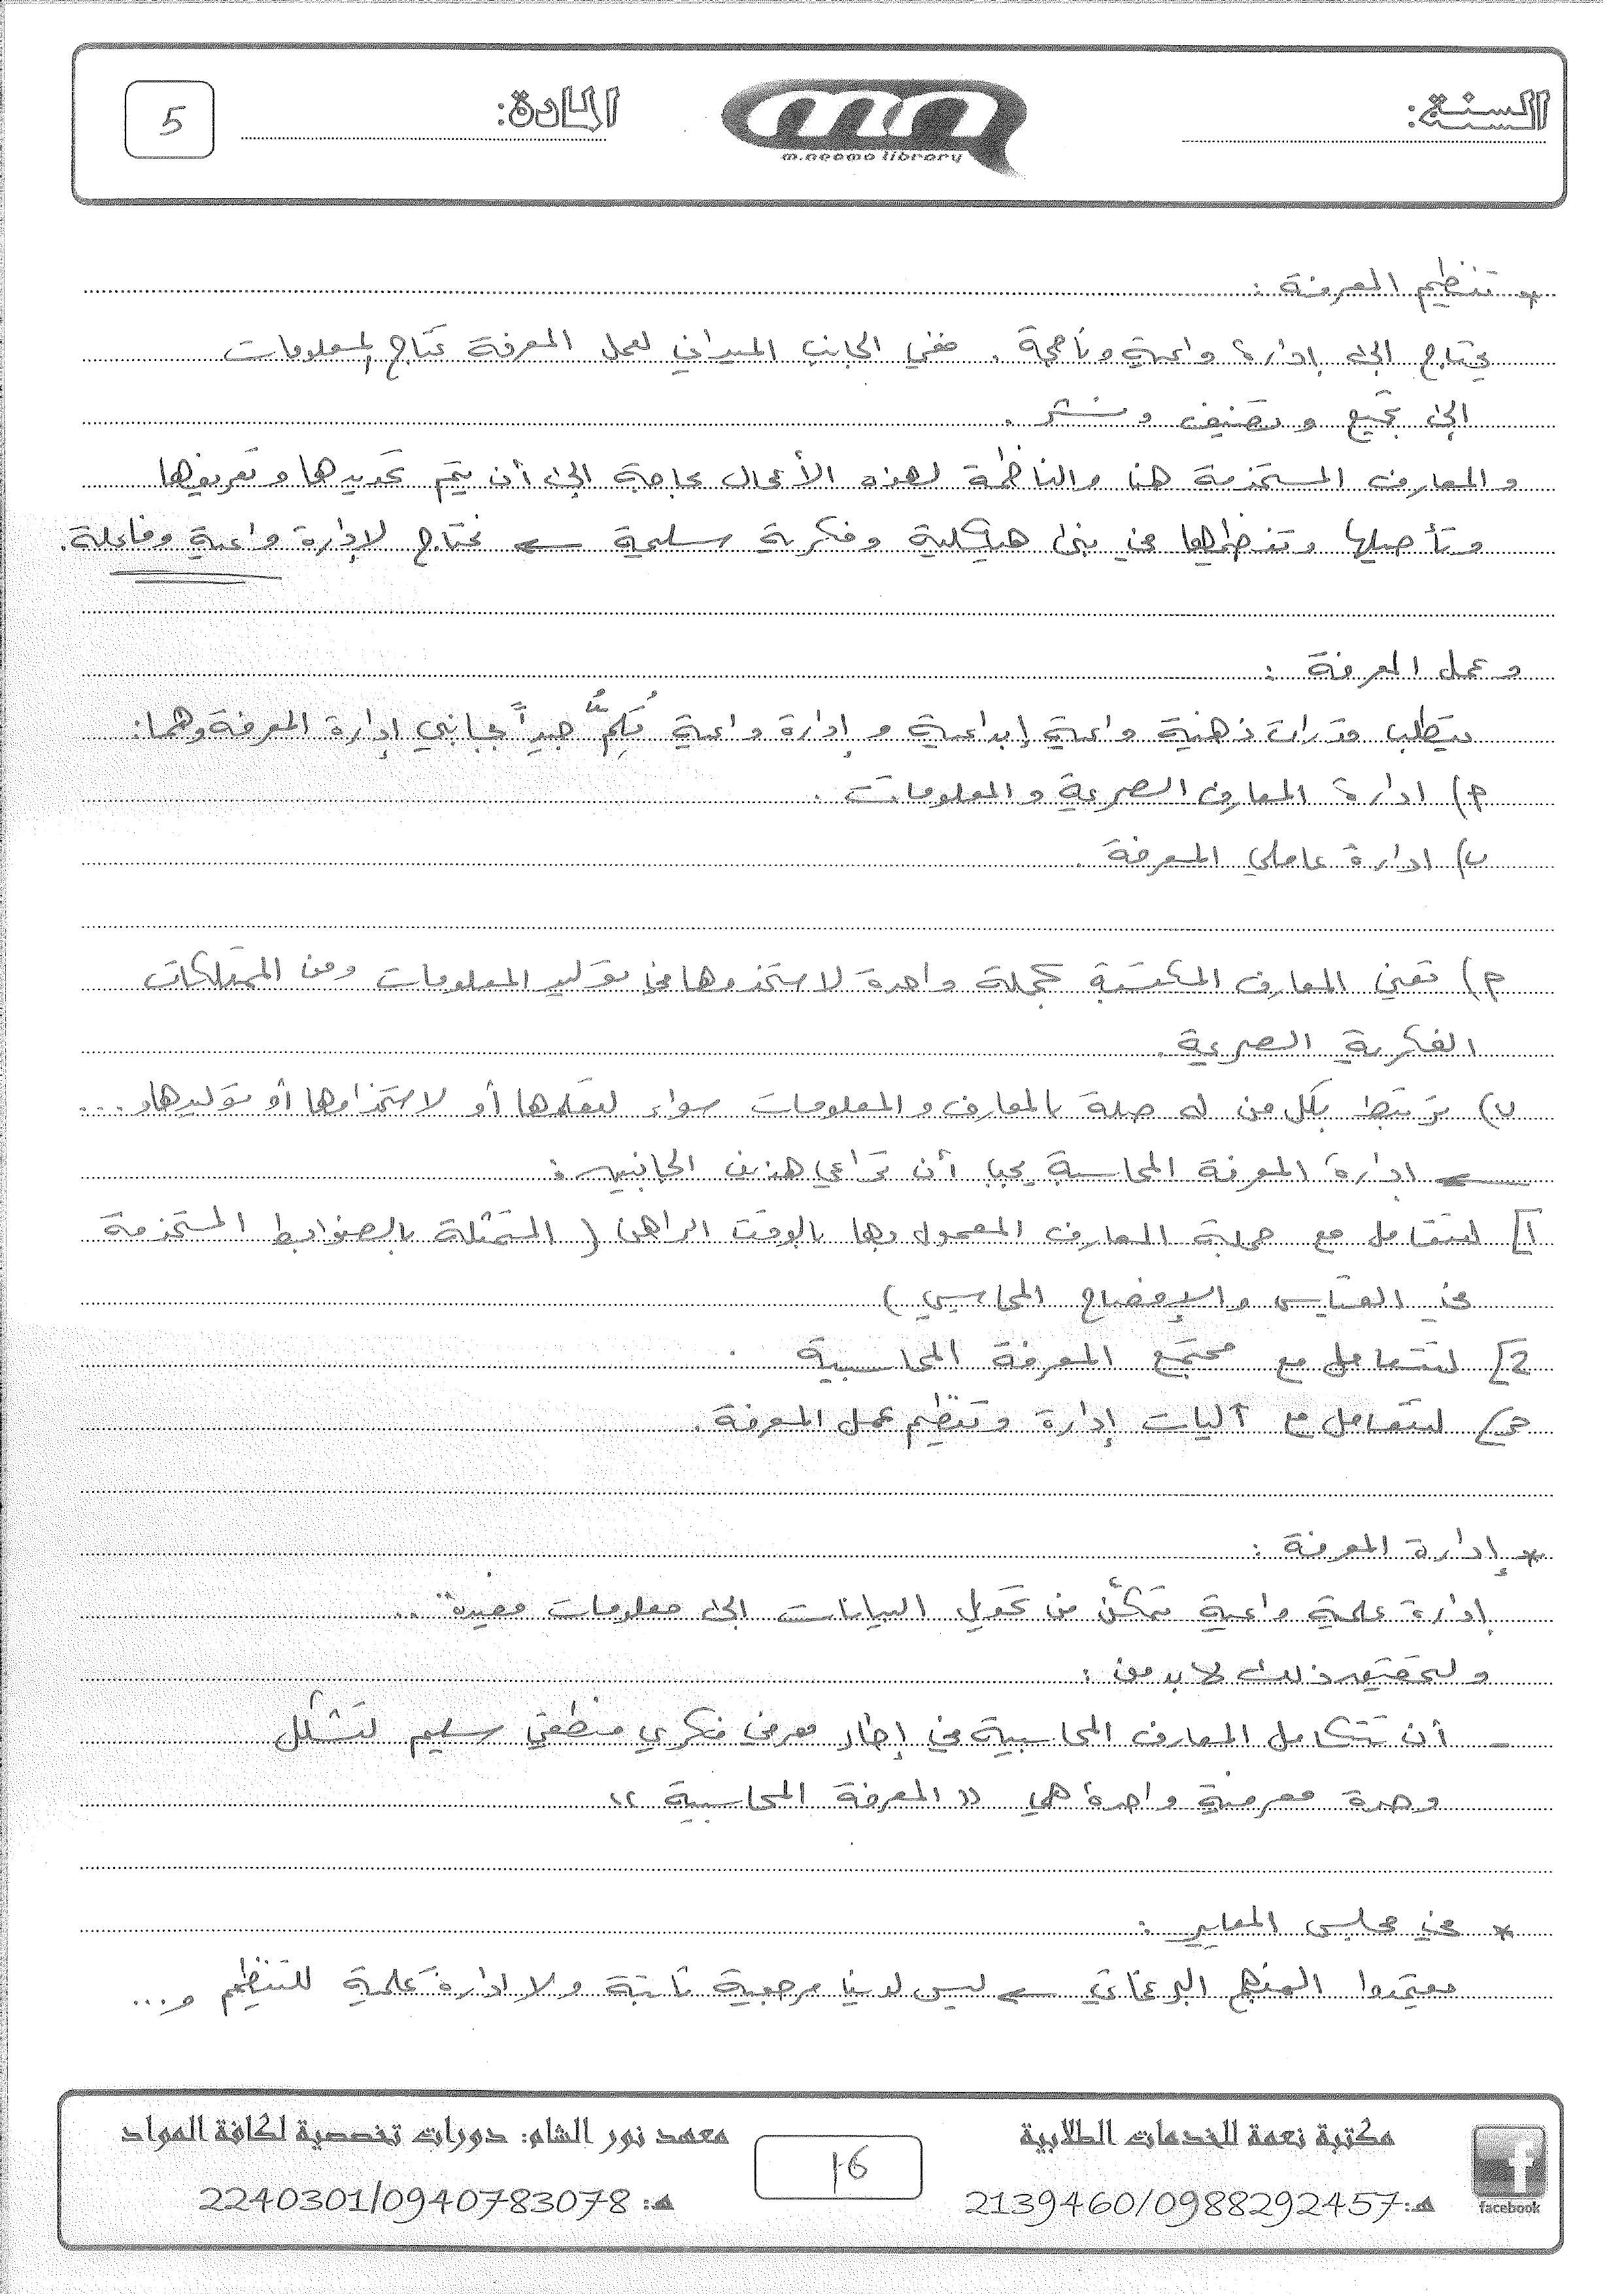 السنة:
m.neama library
المادة:
5
* تنظيم المعرفة :
يحتاج إلى إدارة واعية وناجحة . ففي الجانب الميداني لعمل المعرفة تحتاج لمعلومات
إلى تجميع وتصنيف ونشر .
والمعارف المستخدمة هنا والناظمة لهذه الأعمال بحاجة إلى أن يتم تحديدها وتعريفها
وتأصيلها وتنظيمها في بنى هيكلية وفكرية سليمة ← تحتاج لإدارة واعية وفاعلة .
وعمل المعرفة :
يتطلب قدرات ذهنية واعية إبداعية و إدارة واعية تُلِمُّ جيداً بجانبي إدارة المعرفة وهما :
م) ادارة المعارف الصريحة والمعلومات .
ب) ادارة عاملي المعرفة .
م) تعني المعارف المكتسبة كجملة واحدة لاستخدمها في توليد المعلومات ومن الممتلكات
الفكرية الصريحة .
ب) يرتبط بكل من له صلة بالمعارف والمعلومات سواء لتعلمها أو لاستخدامها أو توليدها و...
← إدارة المعرفة المحاسبية يجب أن تراعي هذين الجانبين :
1] لتتعامل مع المعارف المعمول بها بالوقت الراهن ( المتمثلة بالضوابط المستخدمة
في القياس والإفصاح المحاسبي )
2] لتتعامل مع مجتمع المعرفة المحاسبية .
3] لتتعامل مع آليات إدارة وتنظيم عمل المعرفة .
* إدارة المعرفة :
إدارة علمية واعية تتمكّن من تحويل البيانات إلى معلومات مفيدة ..
ولتحقيق ذلك لابد من :
- أن تتكامل المعارف المحاسبية في إطار معرفي فكري منطقي سليم لتشكل
وحدة معرفية واحدة هي " المعرفة المحاسبية "
* في مجلس المعايير :
يعتمدوا المنهج البرغماتي ← ليس لدينا مرجعية ثابتة ولا ادارة علمية للتنظيم و...
facebook
مكتبة نعمة للخدمات الطلابية
هـ: 2139460/0988292457
16
معهد نور الشام: دورات تخصصية لكافة المواد
هـ: 2240301/0940783078